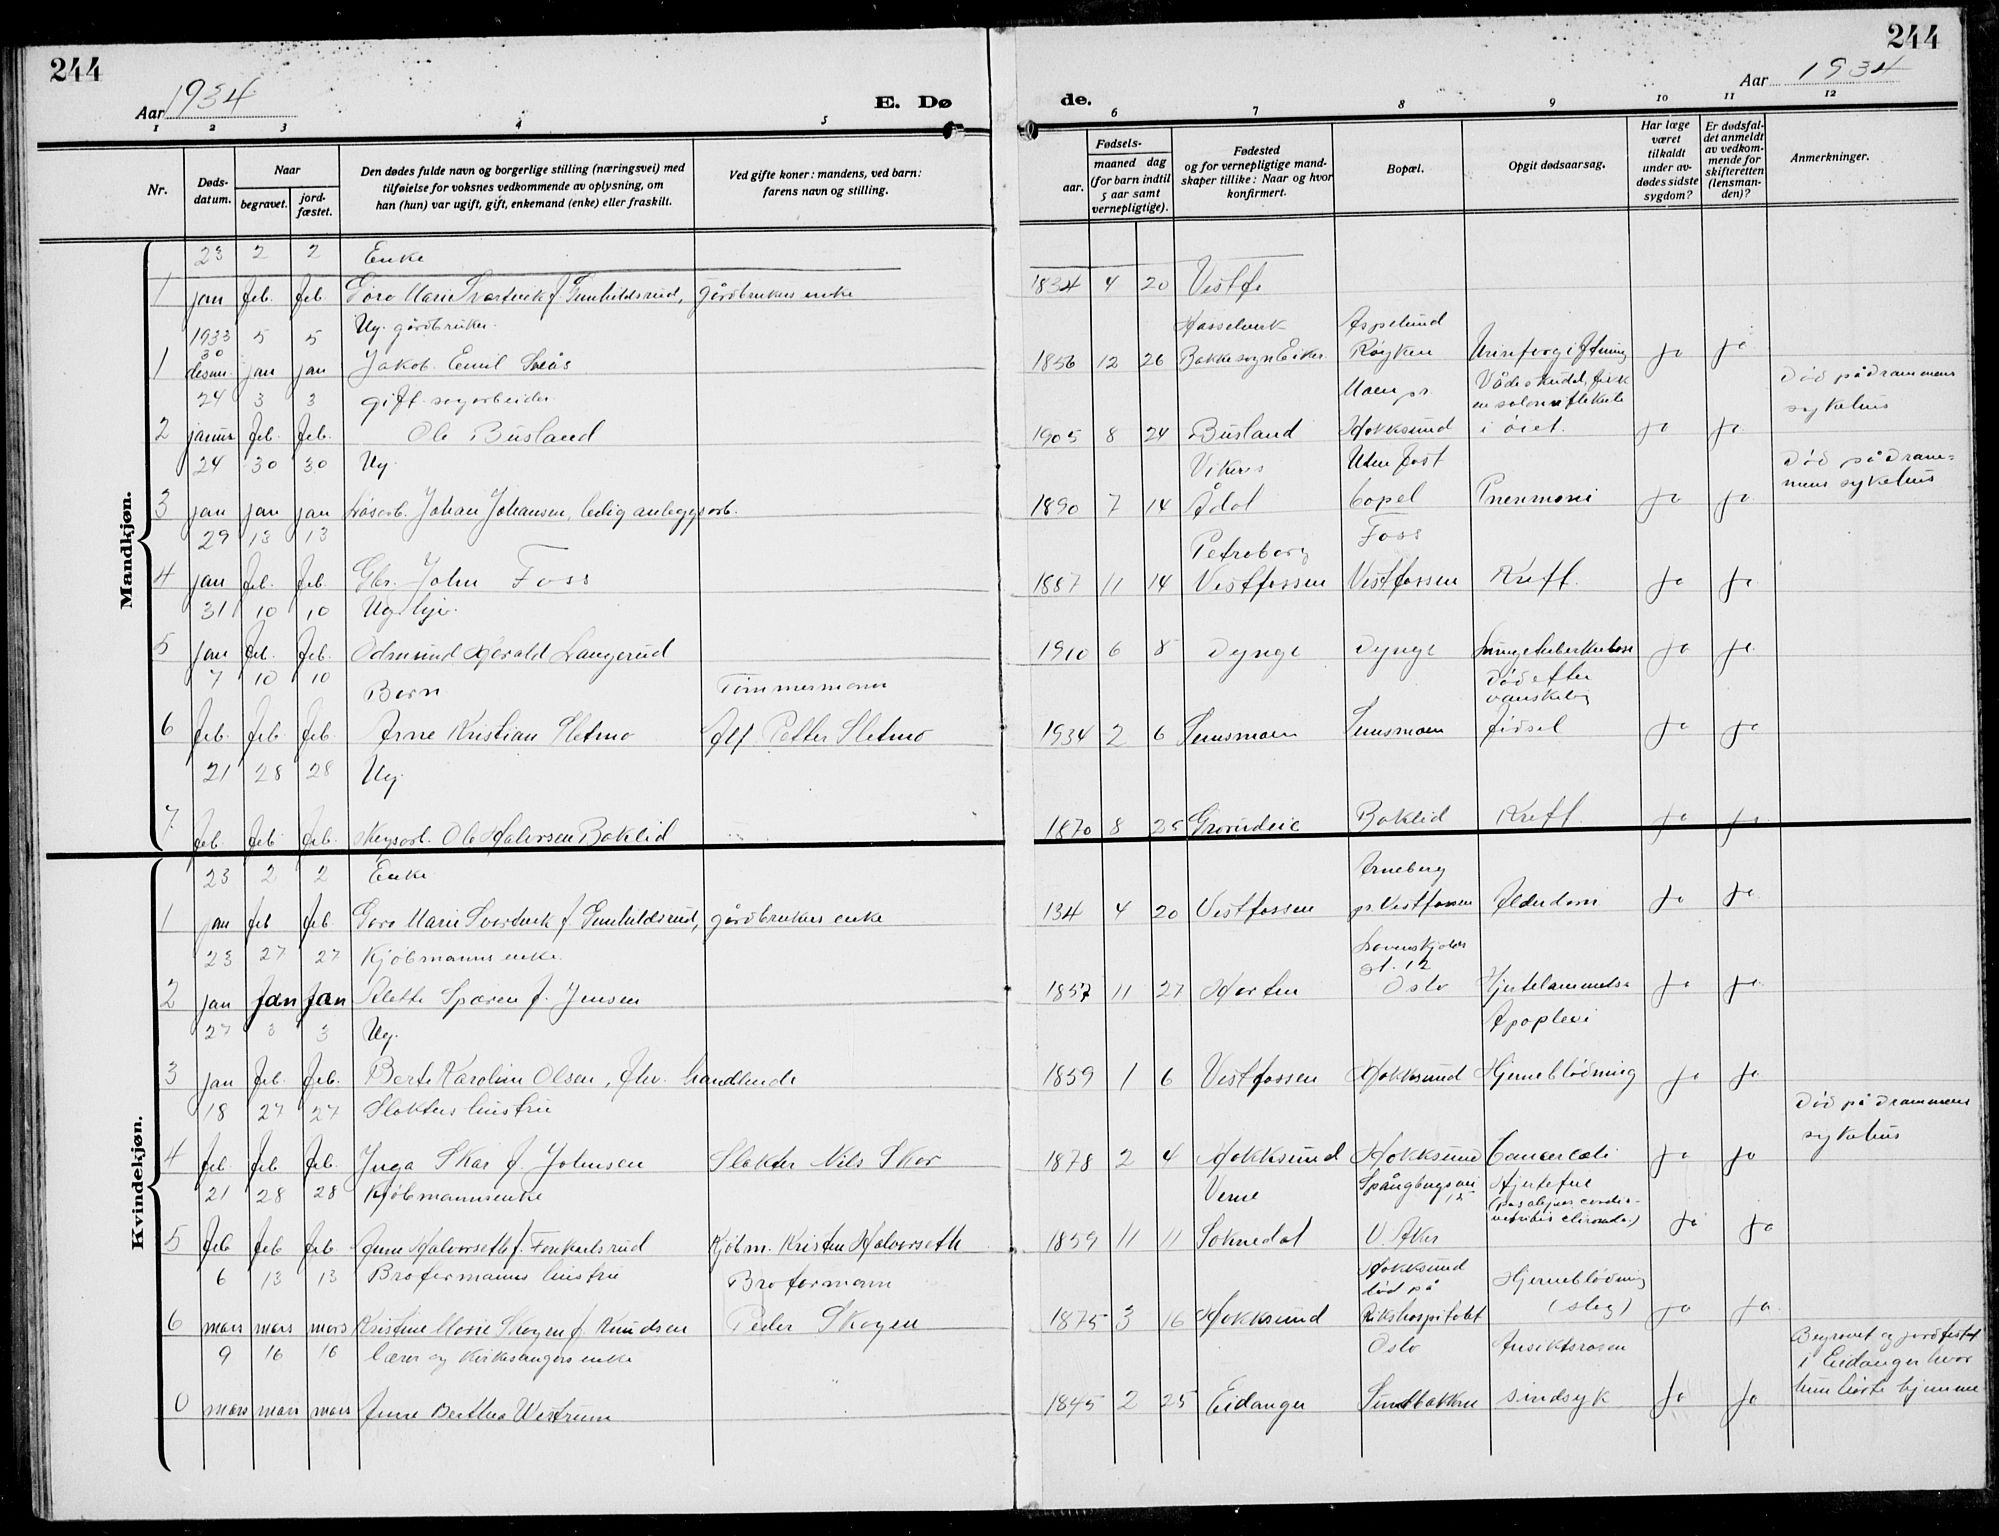 244
244
Aar 1934
E. Dø
de.
Aar 1934
1 2 3 4 5 6 7 8 9 10 11 12
Nr.
Døds-
datum.
Naar
begravet.
jord-
fæstet.
Den dødes fulde navn og borgerlige stilling (næringsvei) med
tilføielse for voksnes vedkommende av oplysning, om
han (hun) var ugift, gift, enkemand (enke) eller fraskilt.
Ved gifte koner: mandens, ved barn:
farens navn og stilling.
Fødsels-
aar.
maaned dag
(for barn indtil
5 aar samt
vernepligtige).
Fødested
og for vernepligtige mand-
skaper tillike: Naar og hvor
konfirmert.
Bopæl.
Opgit dødsaarsag.
Har læge
været
tilkaldt
under av-
dødes sidste
sygdom?
Er dødsfal-
det anmeldt
av vedkom-
mende for
skifteretten
(lensman-
den)?
Anmerkninger.
Mandkjøn.
23 2 2 Enke
1 jan feb. feb Goro Marie Svartvek f. Gunhildsrud, gårdbrukers enke 1834 4 20 Vestfo
1933 5 5 Ug. gårdbruker. Hasselverk Aspelund
30
1 desem. jan jan Jakob Emil Sveås 1856 12 26 Bakke sogn Eiker. Røyken Urinforgiftning ja ja
24 3 3 gift sagarbeider Moen pr. Vådeskudd, fikk
en salonriflekule
Død på Drammens
sykehus
2 januar feb. feb. Ole Busland 1905 8 24 Busland Hokksund i øiet. ja ja
24 30 30 Ug. Vikers Uten fast Død på Dram-
mens sykehus
3 jan jan jan Løsarb. Johan Johansen, ledig anleggsarb. 1890 7 14 Ådal bopel Pnenmoni ja ja
29 13 13 Petroborg Foss
4 jan feb. feb. Gbr. John Foss 1887 11 14 Vestfossen Vestfossen Kreft. ja ja
31 10 10 Ug.
5 jan feb. feb. Odmund Harald Langerud 1910 6 8 Dynge Dynge Lungetuberkulose ja ja
7 10 10 Barn Tømmermann Død efter
vanskelig
6 feb. feb. feb. Arne Kristian Sletmo Alf Petter Sletmo 1934 2 6 Semsmoen Semsmoen fødsel ja ja
21 28 28 Ug.
7. feb. feb feb. Skogsarb. Ole Halvorsen Baklid 1870 8 25 Grorudeie Baklid Kreft. ja ja
Kvindekjøn.
23 2 2 Enke Arneberg
1 jan feb feb. Goro Marie Svartvek f. Gunhildsrud, gårdbrukers enke 134 4 20 Vestfossen pr. Vestfossen Alderdom ja ja
23 27 27 Kjøbmanns enke. Løvenskjolds
gt. 12
2 jan jan jan Alette Sparen f. Jensen 1857 11 27 Horten Oslo Hjertelammelse ja ja
27 3 3 Ug. Apoplexi
3 jan feb. feb. Berte Karoline Olsen, fhv. handlende 1859 1 6 Vestfossen Hokksund Hjerneblødning ja ja
18 27 27 Slakters hustru Død på Drammens
sykehus
4 feb feb feb. Inga Skar f. Johnsen Slakter Nils Skar 1878 2 4 Hokksund Hokksund Cancer coli ja ja
21 28 28 Kjøbmannsenke Veme Spångbergsvei
15
Hjertefeil
5 feb feb feb. Anne Halvorseth f. Kjøbm. Kristen Halvorseth 1859 11 11 Soknedal V. Aker ja ja
6 13 13 Broformanns hustru Broformann Hokksund
død på
Hjerneblødning
6 mars mars mars Kristine Marie Skogen f. Knudsen Peder Skogen 1875 3 16 Hokksund Rikshospitalet (slag) ja ja
9 16 16 Lærer og kirkesangers enke Oslo Ansiktsrosen Begravet og jordfestet
i Eidanger hvor
0 mars mars mars Anne Berthea Westrum 1845 2 25 Eidanger Sundbakken sindsyk ja ja hun hørte hjemme